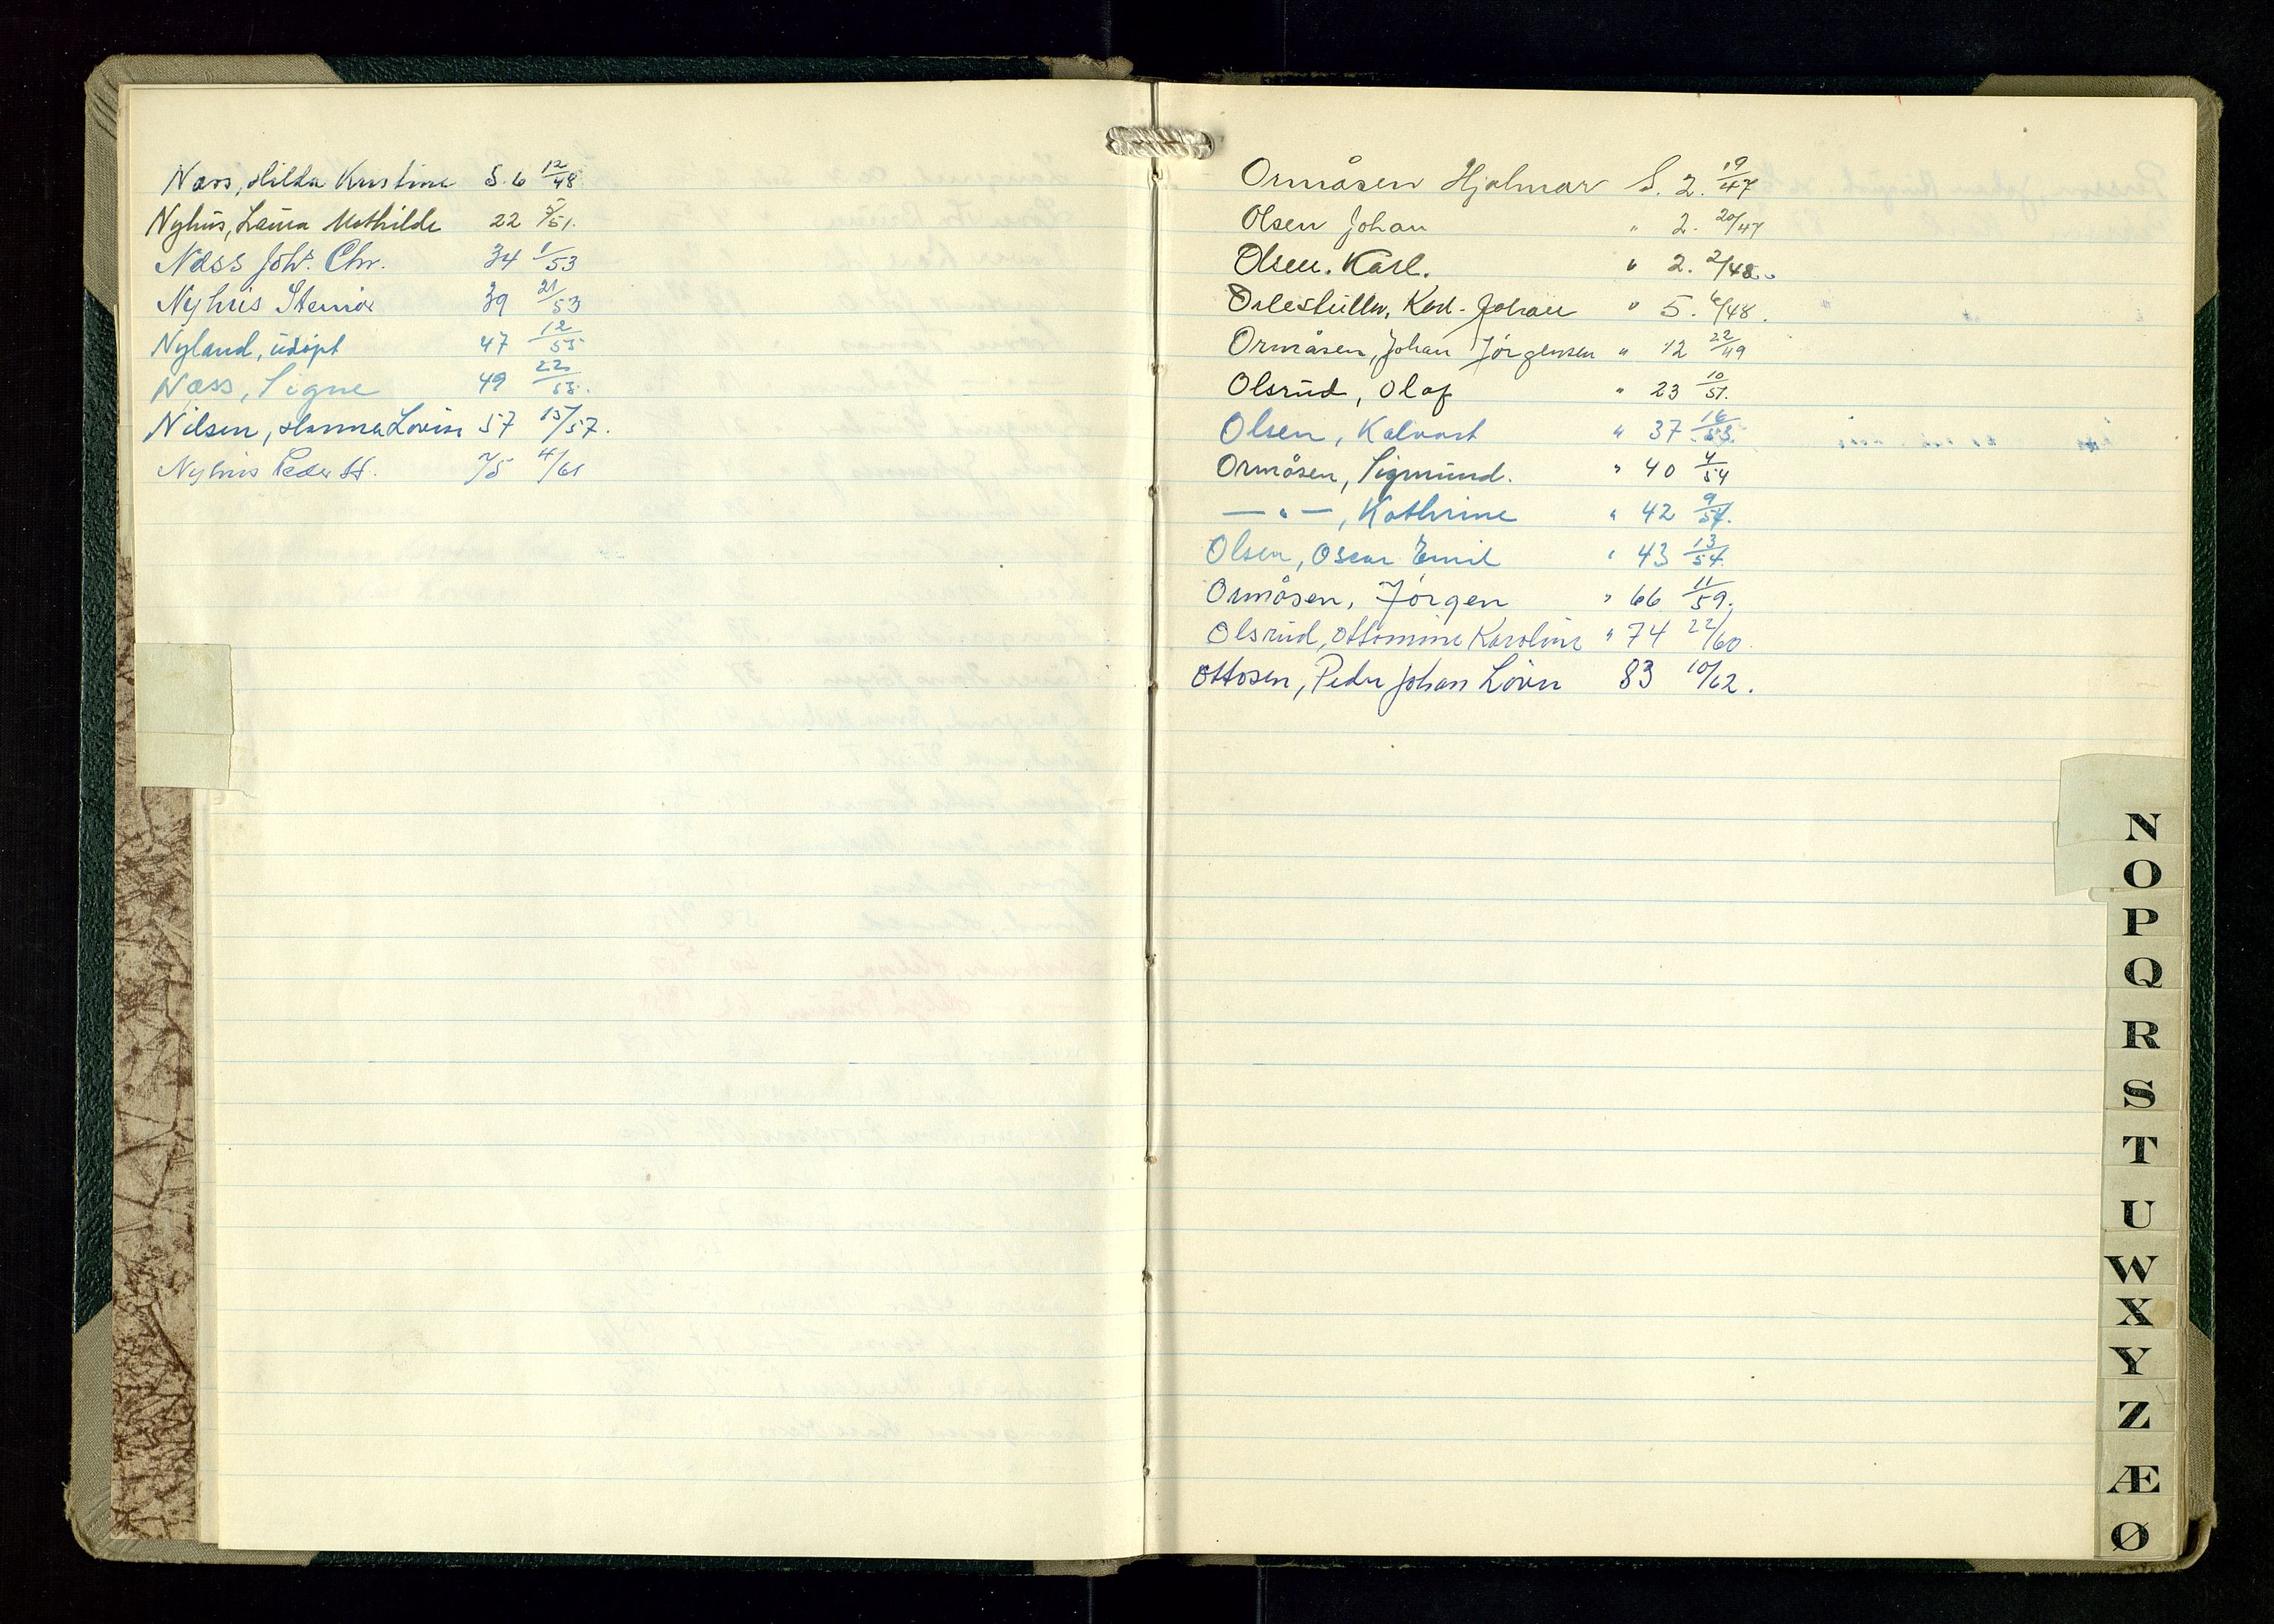 Næss, Hilda Kristine S. 6 12/48
Nyhus, Laura Mathilde 22 5/51.
Næss Johs. Chr. 34 1/53
Nyhus Steinar 39 21/53
Nyland, udøpt 47 12/55
Næss, Signe 49 22/55.
Nilsen, Hanna Lovise 57 15/57.
Nyhus Peder H. 75 4/61
Ormåsen Hjalmar S. 2. 19/47
Olsen Johan " 2. 20/47
Olsen. Karl. " 2. 2/48.
Karl. Johan " 5. 6/48.
Ormåsen, Johan Jørgensen " 12 22/49
Olsrud, Olaf " 23 10/51.
Olsen, " 37 16/53.
Ormåsen, Sigmund. " 40 4/54
— " —, Kathrine " 42 9/54.
Olsen, Oscar Emil " 43 13/54.
Ormåsen, Jörgen " 66 11/59.
Olsrud, Ottomine Karoline " 74 22/60.
Ottosen, Peder Johan 83 10/62.
N
O
P
Q
R
S
T
U
W
X
Y
Z
Æ
Ø